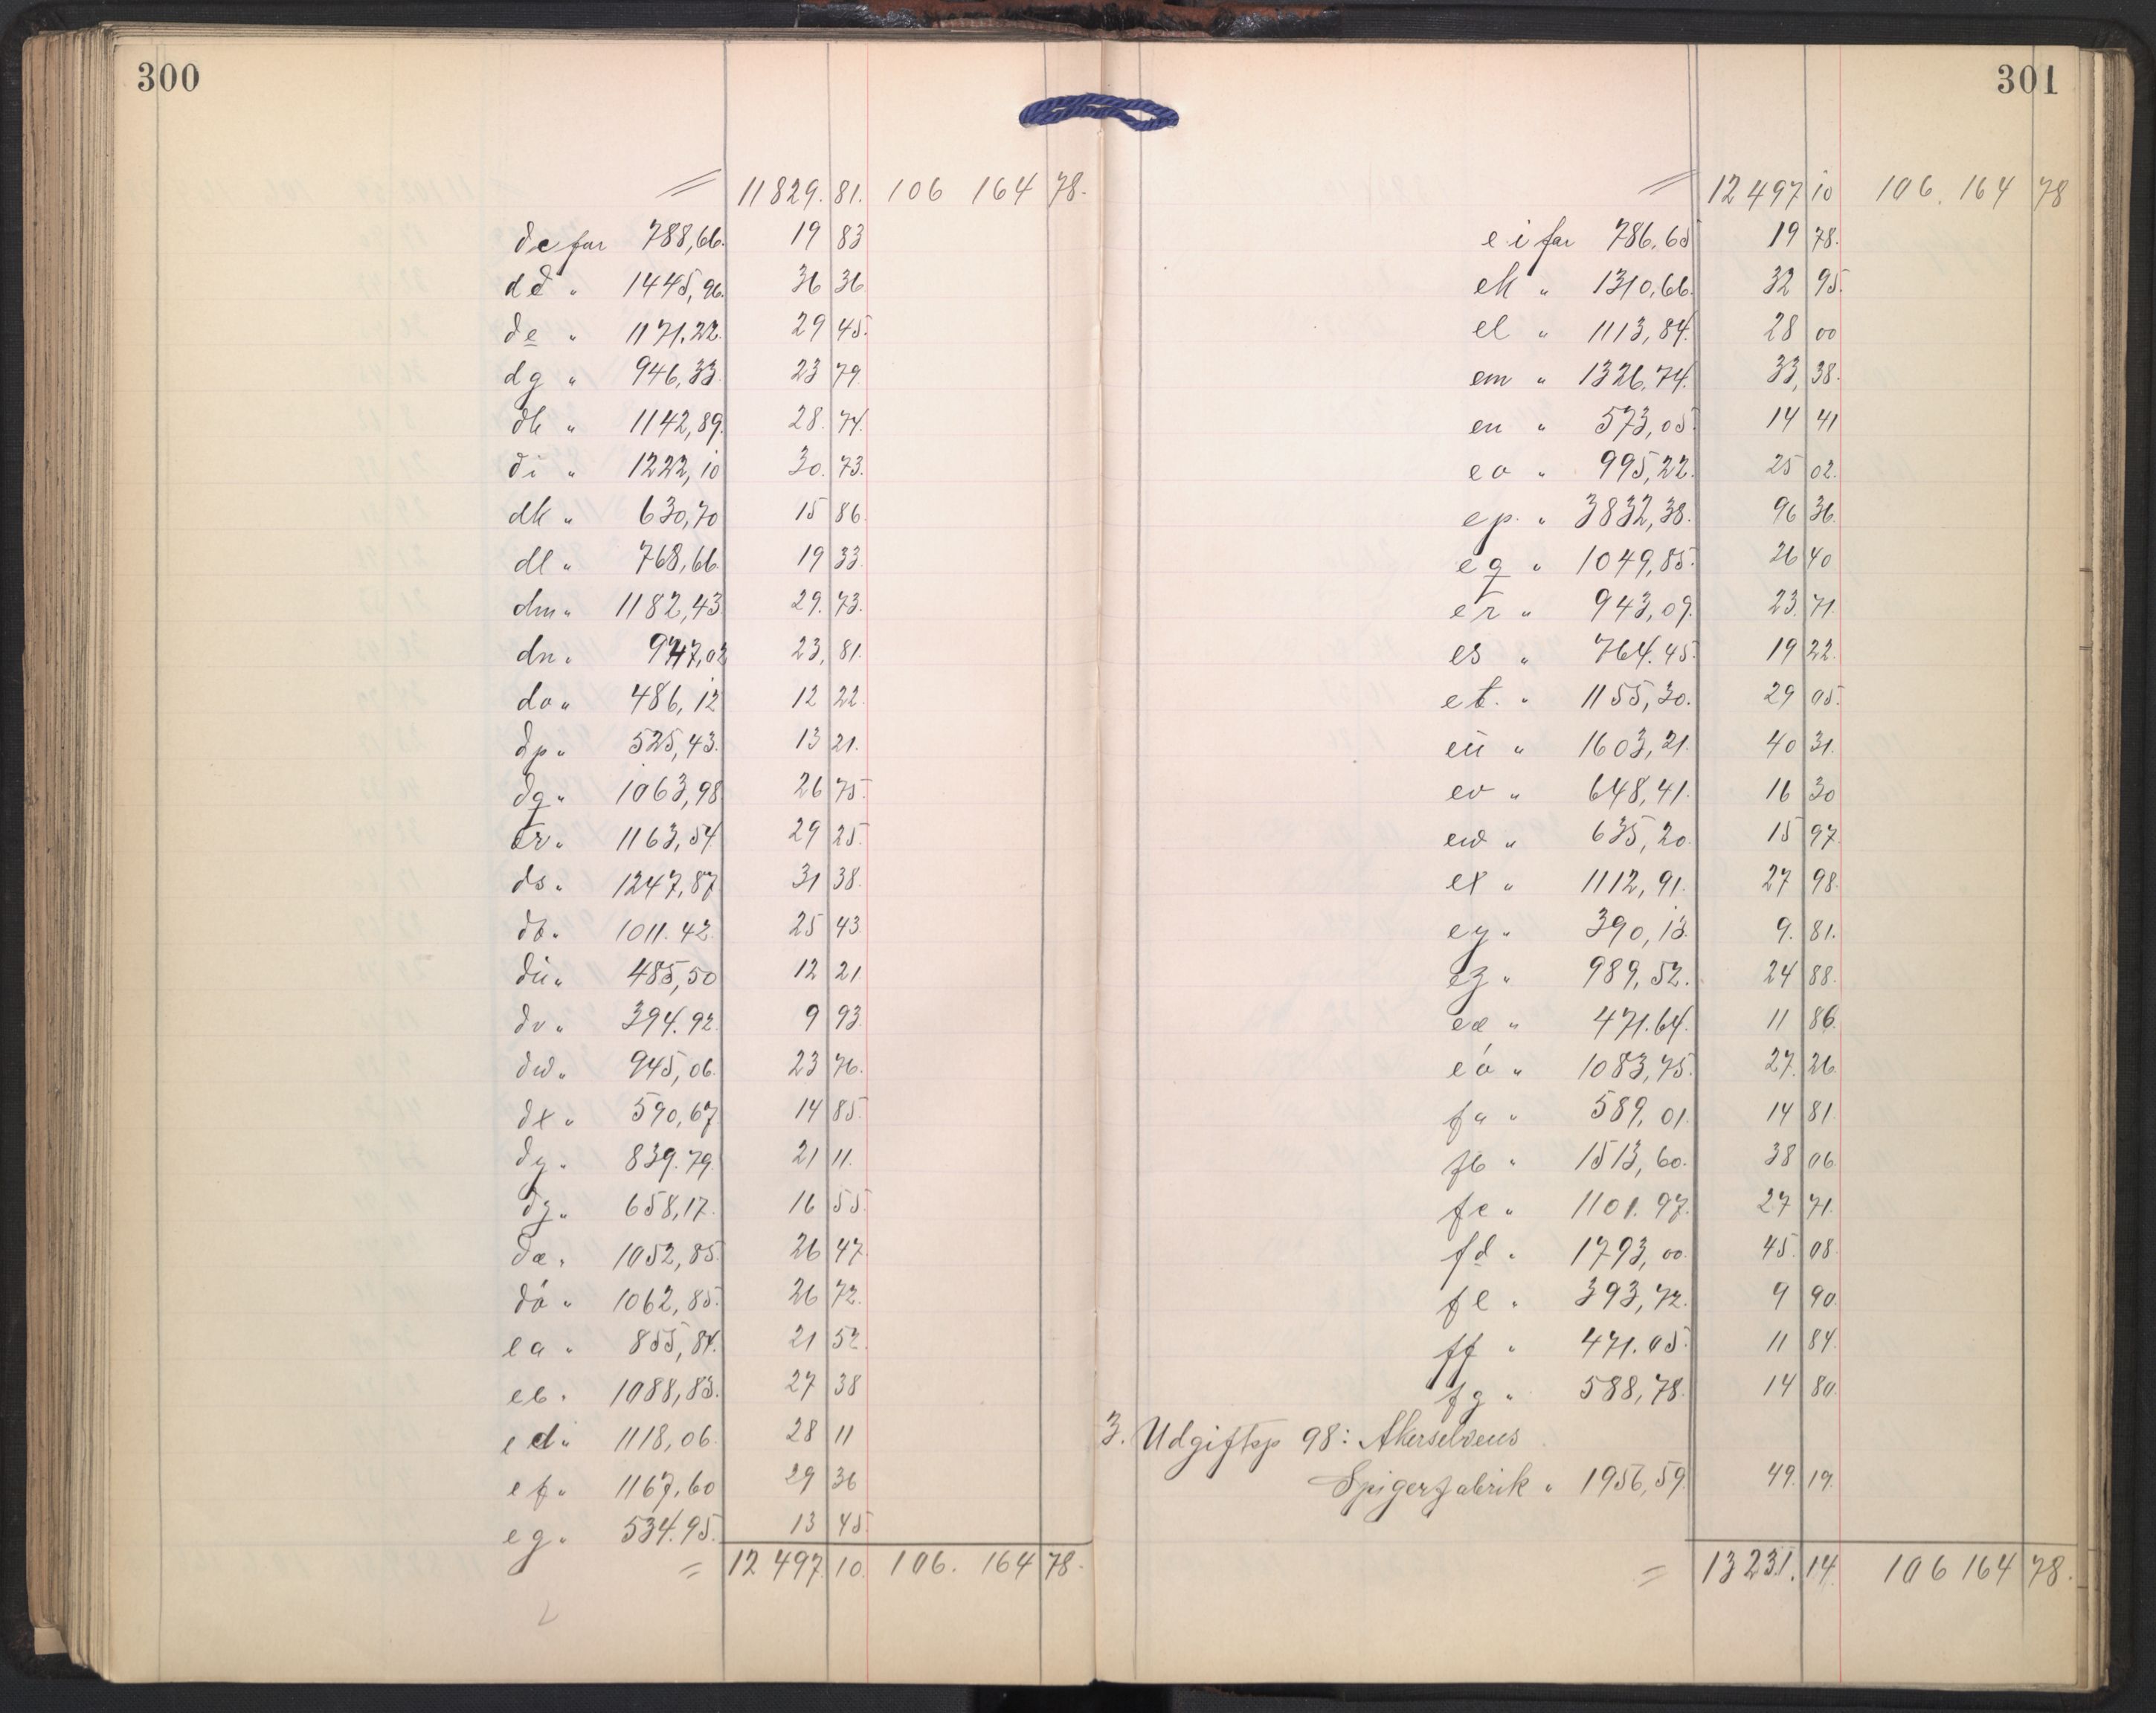 300
= 11829. 81. 106 164 78.
dc for 788,66. 19 83
dd " 1445,96. 36 36
de " 1171.22. 29 45.
dg " 946,33. 23 79
dh " 1142,89. 28. 74.
di " 1222,10 30. 73.
dk " 630,70 15 86.
dl " 768,66. 19 33.
dm " 1182,43 29. 73.
dn " 947,02 23, 81.
do " 486,12 12 22.
dp " 525,43. 13 21.
dq " 1063,98 26 75.
dr " 1163,54 29 25.
ds " 1247,87 31 38.
dt " 1011.42. 25 43.
dü " 485,50 12 21
dv " 394.92. 9 93.
dw " 945,06. 23 76.
dx " 590,67. 14 85.
dy " 839.79. 21 11.
dz " 658,17. 16 55.
dæ " 1052,85. 26 47.
dö " 1062,85. 26 72.
ea " 855,84. 21 52.
eb " 1088,83. 27 38
ed " 1118,06. 28 11
ef " 1167,60 29 36
eg " 534.95. 13 45.
= 12 497. 10. 106. 164 78.
301
= 12 497 10 106. 164 78
ei for 786.65 19 78.
ek " 1310,66. 32 95.
el " 1113,84. 28 00
em " 1326,74. 33, 38.
en " 573,05. 14 41
eo " 995,22. 25 02.
ep. " 3832,38. 96 36.
eq " 1049,85. 26 40
er " 943,09. 23. 71.
es " 764.45. 19 22.
et. " 1155,30. 29 05.
eü " 1603,21. 40 31.
ev " 648,41. 16 30
ew " 635,20. 15 97.
ex " 1112,91. 27 98.
ey " 390,13. 9. 81.
ez " 989,52. 24 88.
eæ " 471.64. 11 86.
eö " 1083,75. 27. 26.
fa " 589,01. 14 81.
fb " 1513,60. 38 06.
fc " 1101.97. 27 71.
fd " 1793,00. 45. 08.
fe " 393,72. 9 90.
ff " 471.05. 11 84.
fg " 588,78. 14 80.
3. Udgiftsp 98: Akerselvens
Spigerfabrik " 1956,59. 49. 19.
= 13 231. 14. 106 164 78.